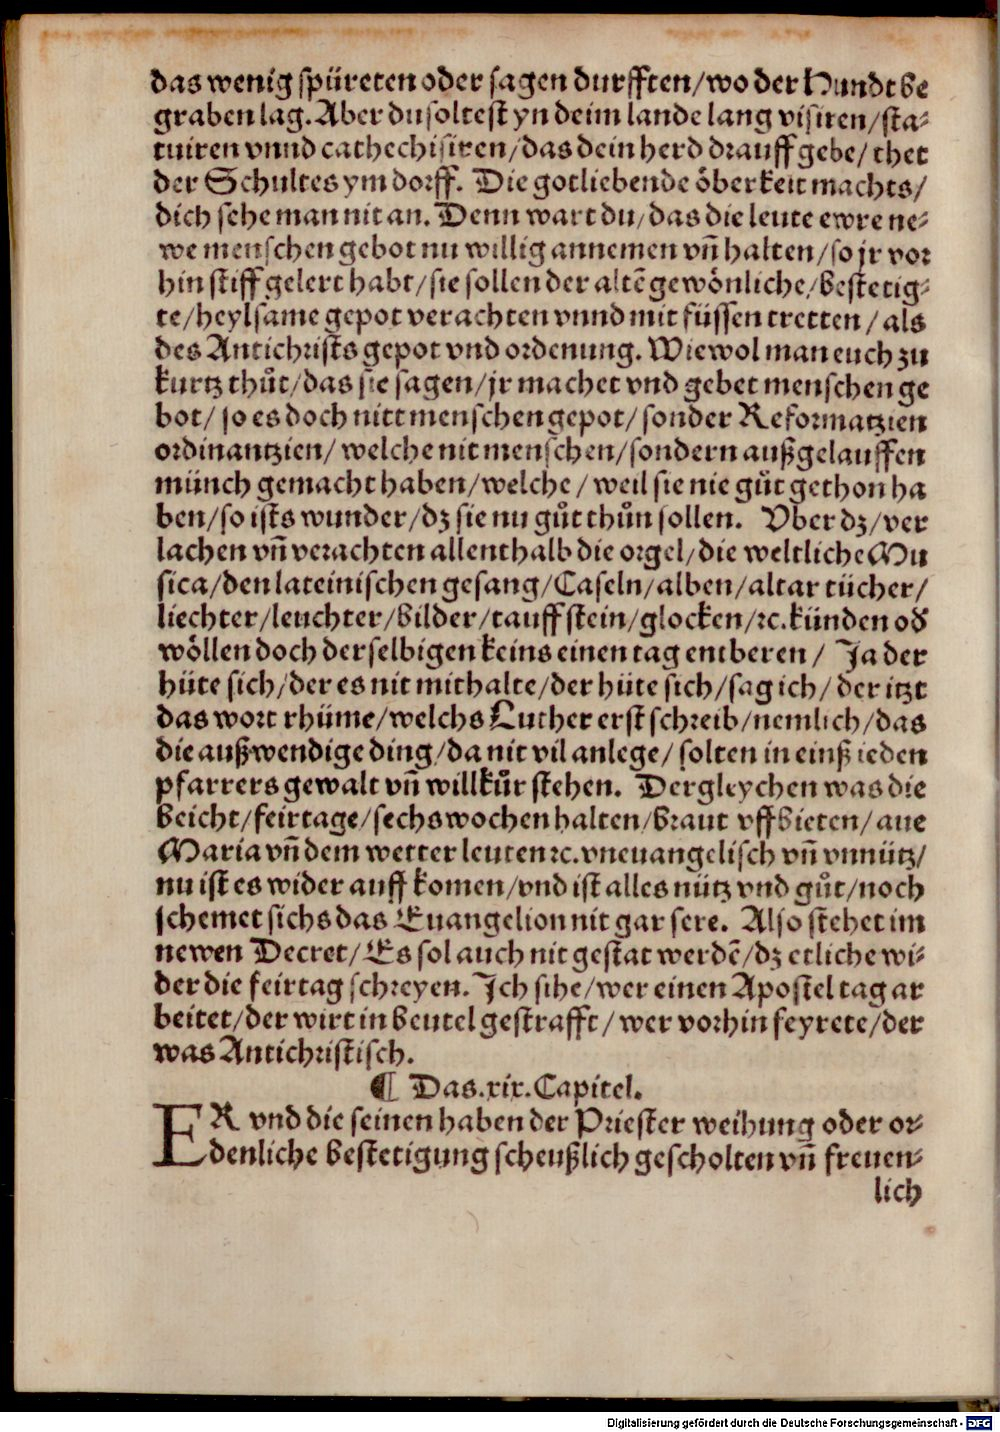 das wenig spüreten oder sagen durfften/wo der Hundt be
graben lag. Aber du soltest yn deim lande lang visiren/sta⸗
tuiren vnnd cathechisiren/das dein herd drauff gebe/thet
der Schultes ym dorff. Die gotliebende öberkeit machts/
dich sehe man nit an. Denn wart du/das die leute ewre ne⸗
we menschen gebot nu willig annemen vñ halten/so jr vor
hin stiff gelert habt/sie sollen der altẽ gewönliche/bestetig⸗
te/heylsame gepot verachten vnnd mit füssen tretten/als
des Antichrists gepot vnd ordenung. Wiewol man euch zu
kurtz thůt/das sie sagen/jr machet vnd gebet menschen ge
bot/so es doch nitt menschen gepot/sonder Reformatzien
ordinantzien/welche nit menschen/sondern außgelauffen
münch gemacht haben/welche/weil sie nie gůt gethon ha
ben/so ists wunder/dz sie nu gůt thůn sollen. Vber dz/ver
lachen vñ verachten allenthalb die orgel/die weltliche Mu
sica/den lateinischen gesang/Caseln/alben/altar tücher/
liechter/leuchter/bilder/tauffstein/glocken/ꝛc. künden oď
wöllen doch derselbigen keins einen tag entberen/Ja der
hüte sich/der es nit mithalte/der hüte sich/sag ich/der itzt
das wort rhüme/welchs Luther erst schreib/nemlich/das
die außwendige ding/da nit vil anlege/solten in einß ieden
pfarrers gewalt vñ willkůr stehen. Dergleychen was die
beicht/feirtage/sechswochen halten/braut vffbieten/aue
Maria vñ dem wetter leuten ꝛc. vneuangelisch vñ vnnütz/
nu ist es wider auff komen/vnd ist alles nütz vnd gůt/noch
schemet sichs das Euangelion nit gar sere. Also stehet im
newen Decret/Es sol auch nit gestat werdẽ/dz etliche wi⸗
der die feirtag schreyen. Ich sihe/wer einen Apostel tag ar
beitet/der wirt in beutel gestrafft/wer vorhin feyrete/der
was Antichristisch.
¶ Das.xix.Capitel.
ER vnd die seinen haben der Priester weihung oder or⸗
denliche bestetigung scheußlich gescholten vñ freuen⸗
lich
Digitalisierung gefördert durch die Deutsche Forschungsgemeinschaft - DFG